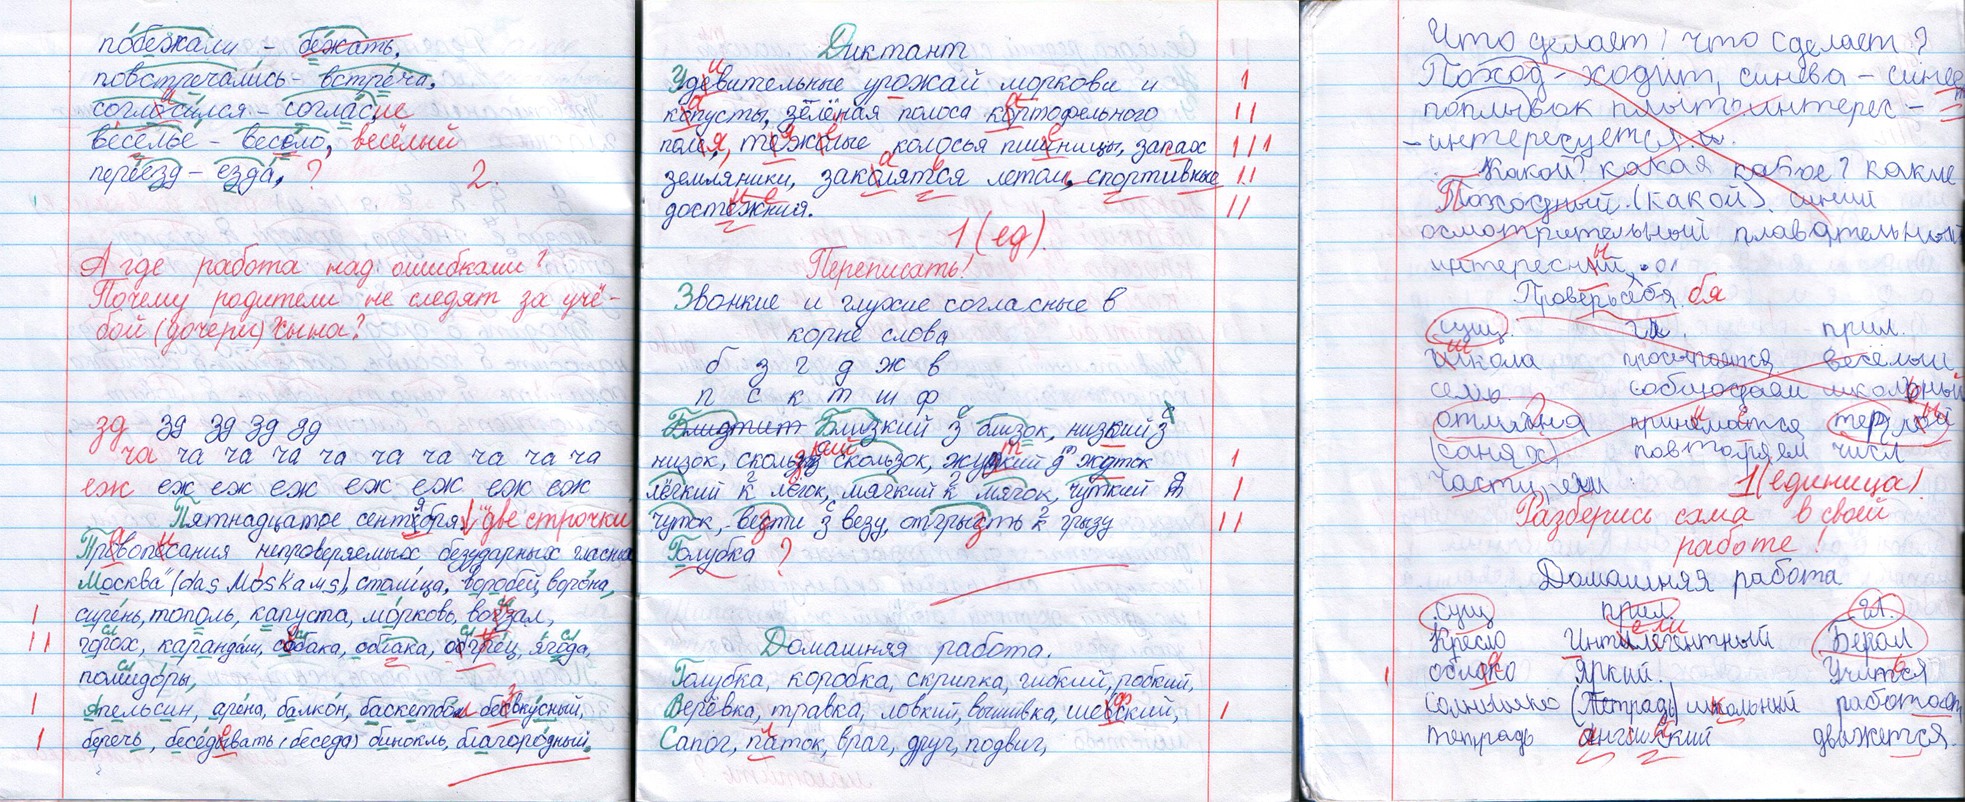 побежали - бежать,
повстречались - встреча,
согласился - согласие
веселье - весело, весёлый
переезд - езда, ? 2
А где работа над ошибками?
Почему родители не следят за учё-
бой (дочери) сына?
зд зд зд зд зд
ча ча ча ча ча ча ча ча ча ча
еж еж еж еж еж еж еж еж
Пятнадцатое сентября две строчки
Правописания непроверяемых безударных гласных
Москва (das Moskaus), столица, воробей, ворона,
сирень, тополь, капуста, морковь, вокзал,
горох, карандаш, собака, огурец, ягода,
помидоры,
Апельсин, арена, балкон, баскетбол, безвкусный,
беречь, беседовать (беседа) бинокль, благородный.
Диктант
Удивительные урожай моркови и
капусты, зелёная полоса картофельного
поля, тяжёлые колосья пшеницы, запах
земляники, закаляться летом, спортивные
достижения.
1 (ед).
Переписать!
Звонкие и глухие согласные в
корне слова
б з г д ж в
п с к т ш ф
Близкий з близок, низкий з
низок, скользкий скользок, жуткий жуток
лёгкий к легок, мягкий к мягок, чуткий т
чуток, везти з везу, отгрызть грызу
Голубка ?
Домашняя работа.
Голубка, коробка, скрипка, гибкий, робкий,
Верёвка, травка, ловкий, вышивка, шефский,
Сапог, паток, враг, друг, подвиг,
Что делает? что сделает?
Поход - ходит, синева - синеет
поплывок плыть интерес -
- интересуется.
Какой? какая какое? какие
Походный (какой). синий
осмотрительный плавательный
интересный,
Проверь себя. бя
сущ. гл. прил.
Школа просыпаются весёлый
семь. соблюдаем школьный
отмязна принимается
(саня х) повторяем числ
части, речи 1 (единица).
Разберись сама в своей
работе!
Домашняя работа
сущ прил. гл.
Кресло Интеллигентный Берал
облако яркий. Учиться
солнышко (Тетрадь) школьный работает
тетрадь английский движется.